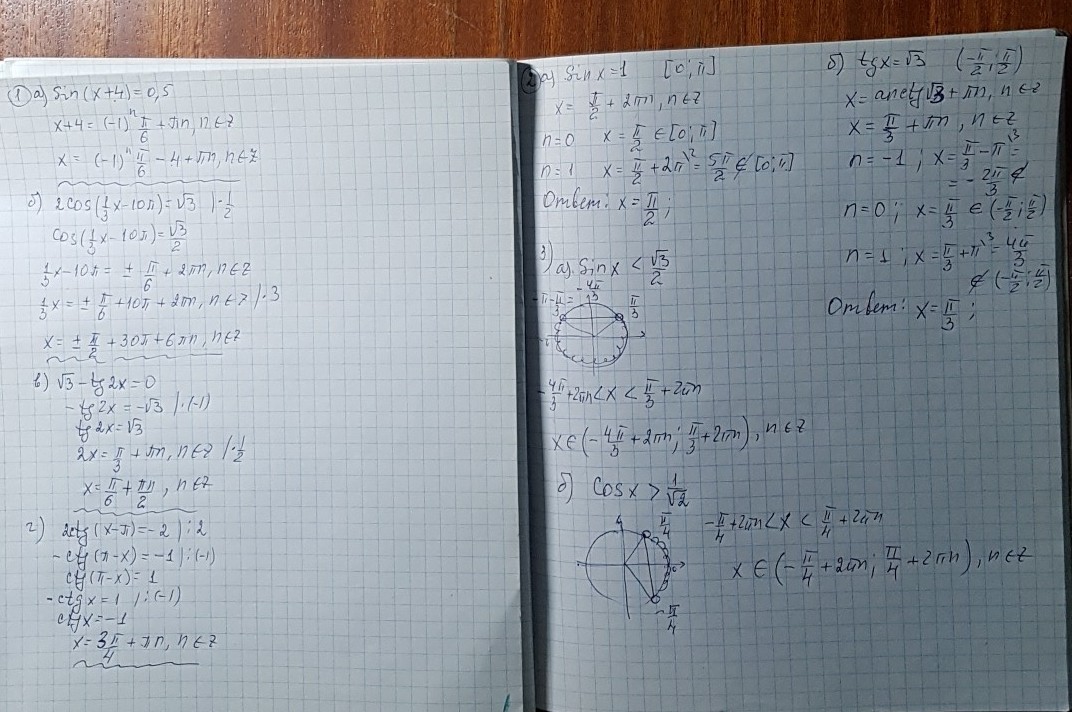 ① а) Sin(x+4)=0,5
x+4=(-1)ⁿ π/6 + πn, n∈Z
x = (-1)ⁿ π/6 - 4 + πn, n∈Z
б) 2cos(1/3 x-10π)=√3 |·1/2
cos(1/3 x-10π)=√3/2
1/3 x-10π = ± π/6 + 2πn, n∈Z
1/3 x = ± π/6 + 10π + 2πn, n∈Z |·3
x = ± π/2 + 30π + 6πn, n∈Z
в) √3 - tg2x = 0
- tg2x = -√3 |:(-1)
tg2x = √3
2x = π/3 + πn, n∈Z |·1/2
x = π/6 + πn/2, n∈Z
г) 2ctg(x-π)=-2 |:2
- ctg(π-x)=-1 |:(-1)
ctg(π-x)=1
- ctgx=1 |:(-1)
ctgx=-1
x = 3π/4 + πn, n∈Z
② а) Sinx=1 [0;π]
x = π/2 + 2πn, n∈Z
n=0 x = π/2 ∈[0;π]
n=1 x = π/2 + 2π\² = 5π/2 ∉[0;π]
Ответ: x = π/2;
б) tgx=√3 (-π/2;π/2)
x = arctg√3 + πn, n∈Z
x = π/3 + πn, n∈Z
n=-1; x = π/3 - π\³ =
= -2π/3 ∉
n=0; x = π/3 ∈(-π/2;π/2)
n=1; x = π/3 + π\³ = 4π/3
∉(-π/2;π/2)
Ответ: x = π/3;
3) а) Sinx < √3/2
-π-π/3 = -4π/3 π/3
-4π/3+2πn<x<π/3+2πn
x∈(-4π/3+2πn; π/3+2πn), n∈Z
б) cosx > 1/√2
π/4
-π/4
-π/4+2πn<x<π/4+2πn
x∈(-π/4+2πn; π/4+2πn), n∈Z